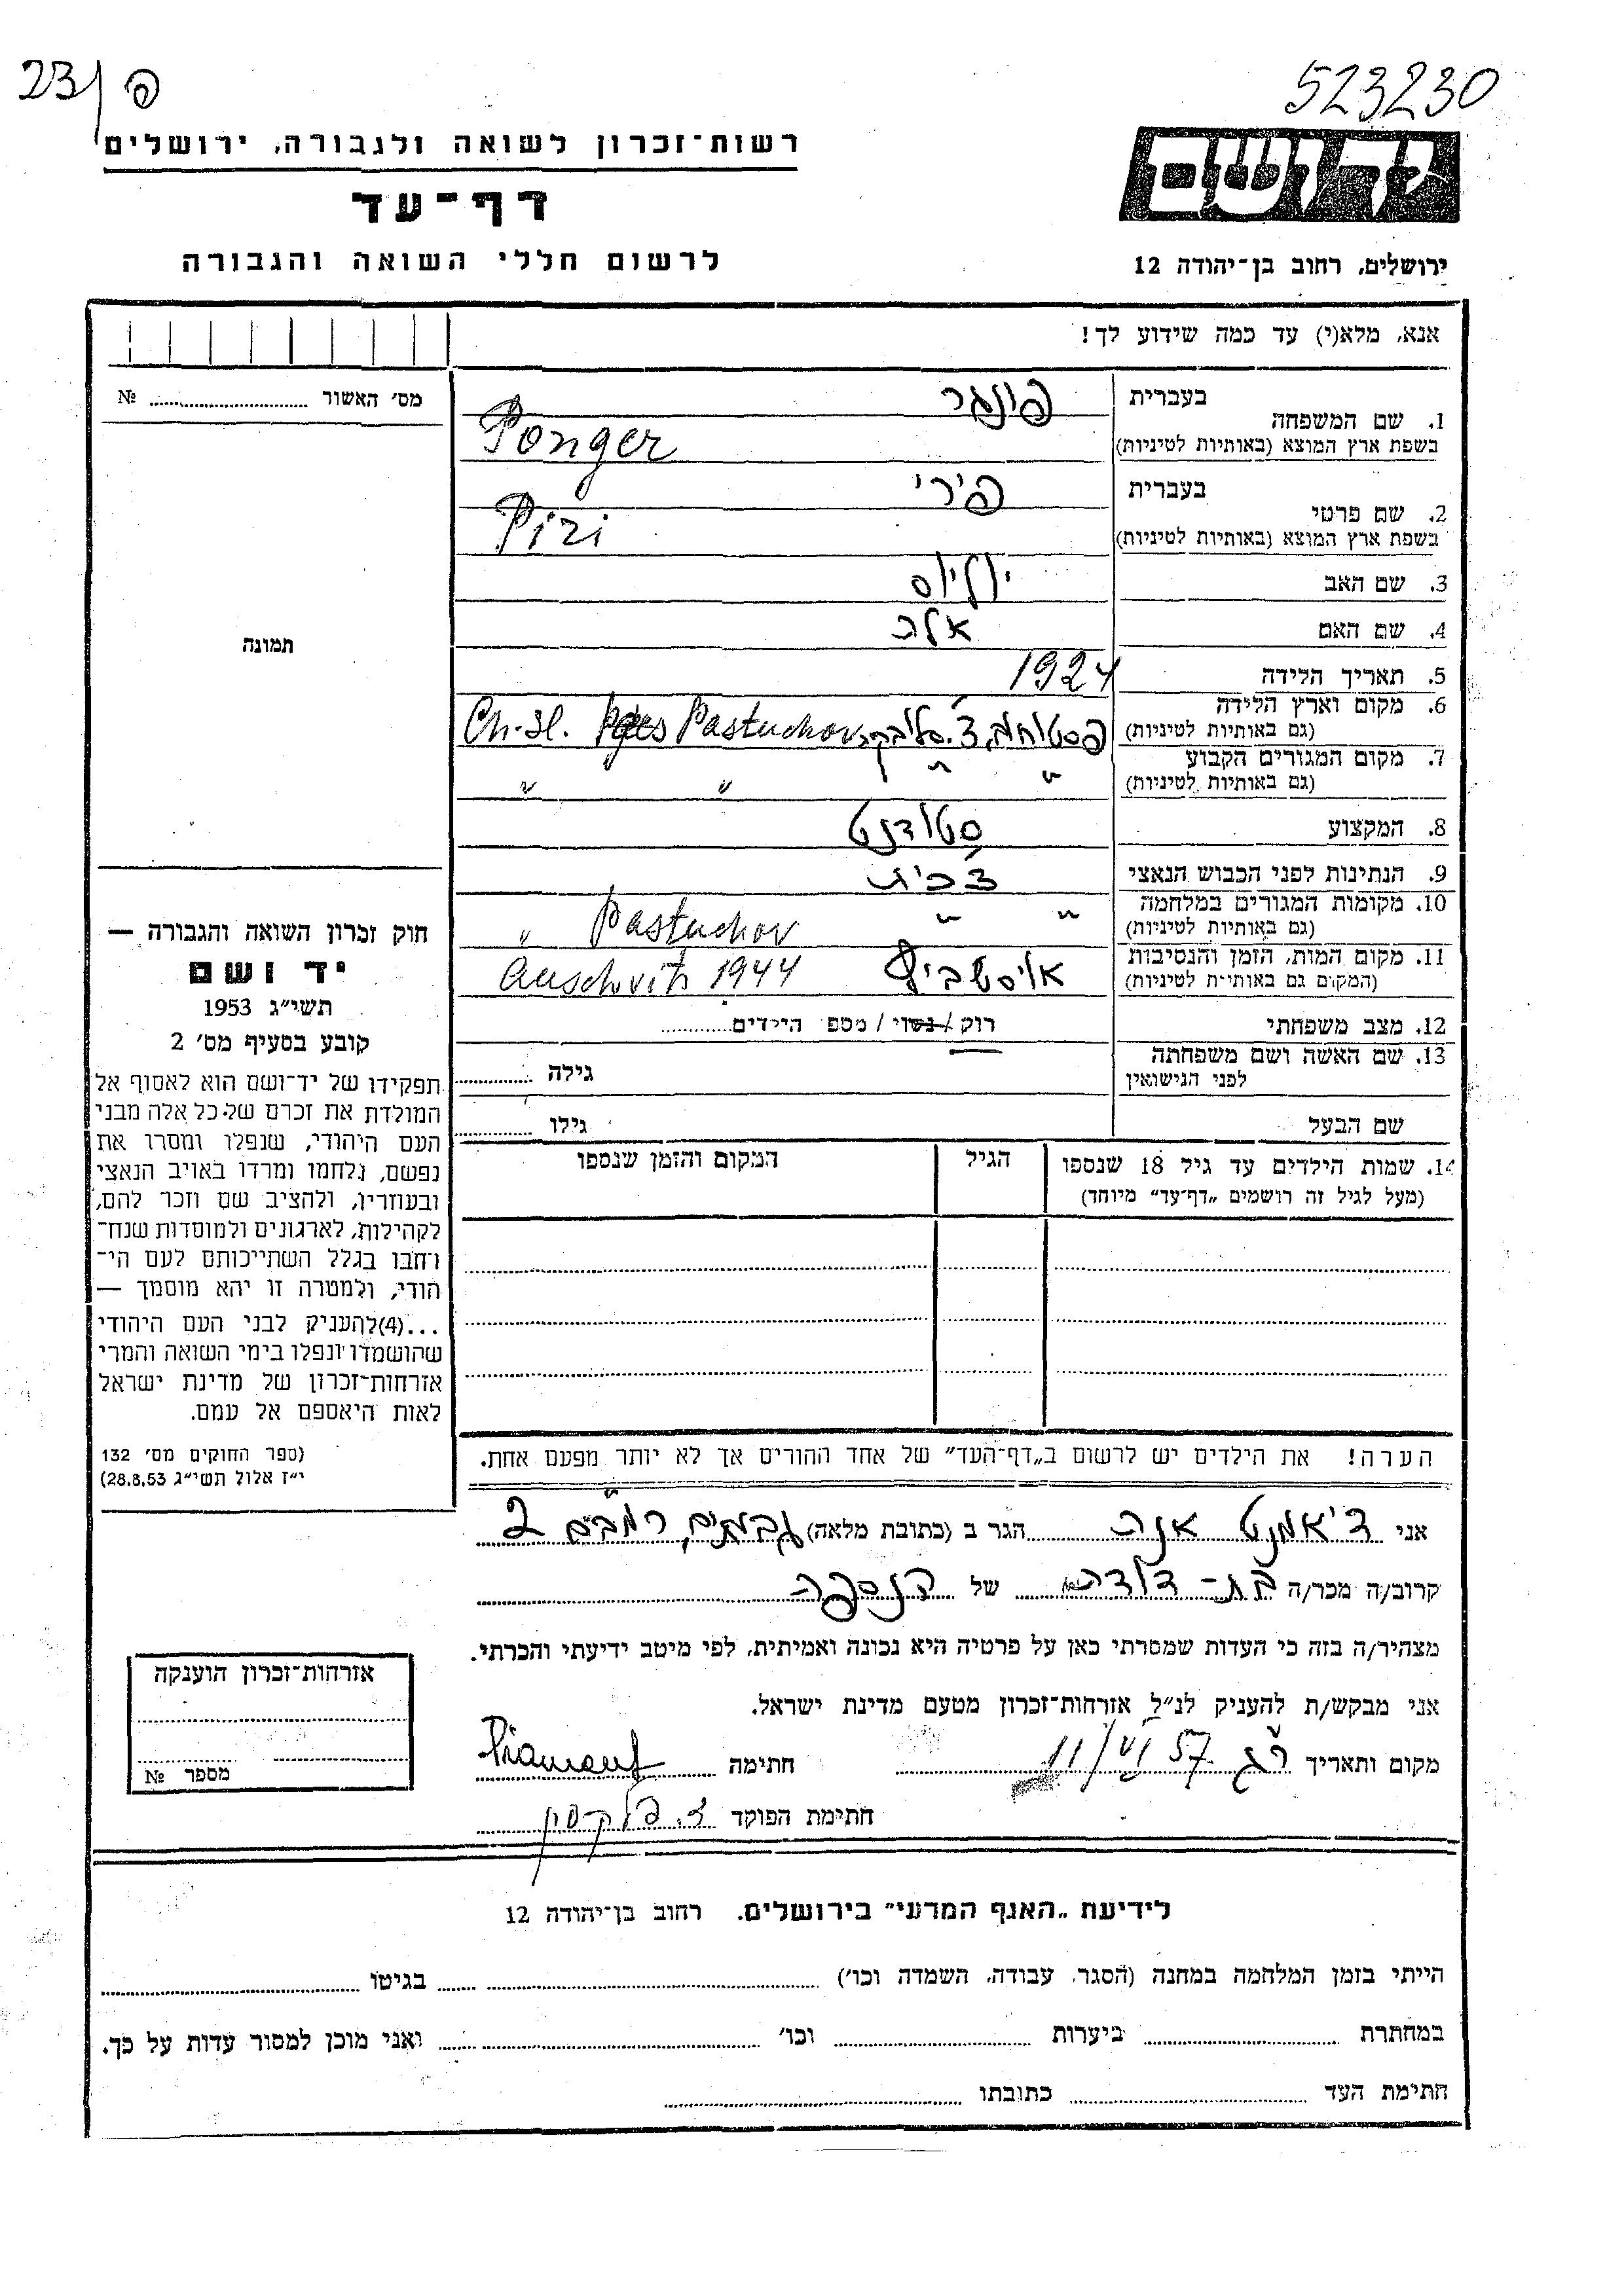 523230
23/פ
יד ושם
ירושלים, רחוב בן־יהודה 12
רשות־זכרון לשואה ולגבורה, ירושלים
דף־עד
לרשום חללי השואה והגבורה
אנא, מלא(י) עד כמה שידוע לך!
מס׳ האשור № 
1. שם המשפחה
בעברית פונגר
בשפת ארץ המוצא (באותיות לטיניות) Ponger
2. שם פרטי
בעברית פירי
בשפת ארץ המוצא (באותיות לטיניות) Piri
3. שם האב יוליוס
4. שם האם
5. תאריך הלידה 1924
6. מקום וארץ הלידה
(גם באותיות לטיניות) Ch.-Sl. Pastuchov
7. מקום המגורים הקבוע
(גם באותיות לטיניות) " " " "
8. המקצוע סטודנט
9. הנתינות לפני הכבוש הנאצי צ׳כית
10. מקומות המגורים במלחמה
(גם באותיות לטיניות) " " Pastuchov "
11. מקום המות, הזמן והנסיבות
(המקום גם באותיות לטיניות) Auschvitz 1944
12. מצב משפחתי רוק / נשוי / מספ הילדים
13. שם האשה ושם משפחתה
לפני הנישואין גילה
שם הבעל גילו
14. שמות הילדים עד גיל 18 שנספו
(מעל לגיל זה רושמים „דף־עד״ מיוחד)
הגיל
המקום והזמן שנספו
תמונה
חוק זכרון השואה והגבורה —
יד ושם
תשי״ג 1953
קובע בסעיף מס׳ 2
תפקידו של יד־ושם הוא לאסוף אל
המולדת את זכרם של כל אלה מבני
העם היהודי, שנפלו ומסרו את
נפשם, נלחמו ומרדו באויב הנאצי
ובעוזריו, ולהציב שם וזכר להם,
לקהילות, לארגונים ולמוסדות שנח־
רחבו בגלל השתייכותם לעם הי־
הודי, ולמטרה זו יהא מוסמך —
...(4)להעניק לבני העם היהודי
שהושמדו ונפלו בימי השואה והמרי
אזרחות־זכרון של מדינת ישראל
לאות היאספם אל עמם.
(ספר החוקים מס׳ 132
י״ז אלול תשי״ג 28.8.53)
הערה! את הילדים יש לרשום ב„דף־העד״ של אחד ההורים אך לא יותר מפעם אחת.
אני דיאמנט הגר ב (כתובת מלאה) גבעתיים, רמב״ם 2
קרוב/ה מכר/ה בת-דודה של הנספה
מצהיר/ה בזה כי העדות שמסרתי כאן על פרטיה היא נכונה ואמיתית, לפי מיטב ידיעתי והכרתי.
אני מבקש/ת להעניק לנ״ל אזרחות־זכרון מטעם מדינת ישראל.
מקום ותאריך ר״ג 11/VI 57 חתימה Diamant
חתימת הפוקד
אזרחות־זכרון הוענקה
מספר №
לידיעת „האגף המדעי״ בירושלים. רחוב בן־יהודה 12
הייתי בזמן המלחמה במחנה (הסגר, עבודה, השמדה וכו׳) בגיטו
במחתרת ביערות וכו׳ ואני מוכן למסור עדות על כך.
חתימת העד כתובתו